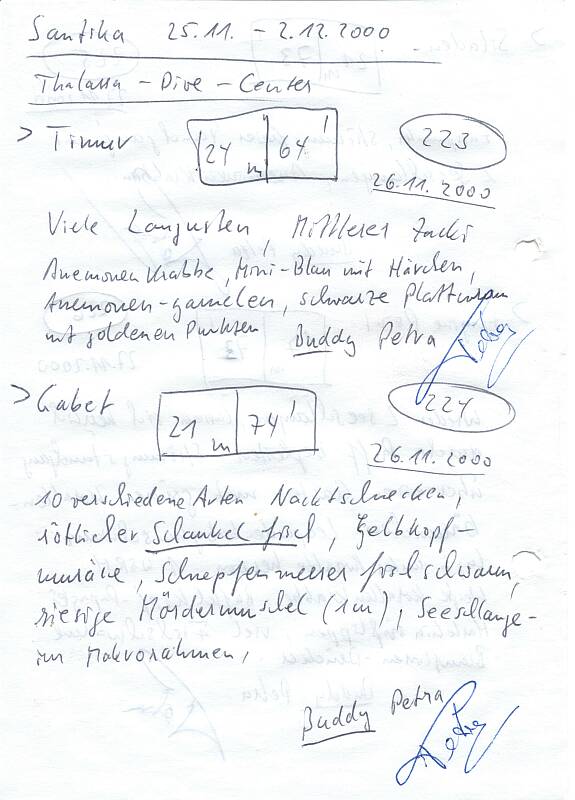 Santika 25.11. - 2.12.2000
Thalassa - Dive - Center
> Timur 24 m 64' 223
26.11.2000
Viele Langusten, Mittlerer Zacki
Anemonen Krabbe, Mini-Blau mit Härchen,
Anemonen-garnelen, schwarze Plattwürmer
mit goldenen Punkten Buddy Petra Petra
> Gabet 21 m 74' 224
26.11.2000
10 verschiedene Arten Nacktschnecken,
rötlicher Schaukelfisch, Gelbkopf-
muräne, Schnepfenmesserfischschwarm,
riesige Mördermuschel (1m), Seeschlange-
im Makrorahmen,
Buddy Petra
Petra